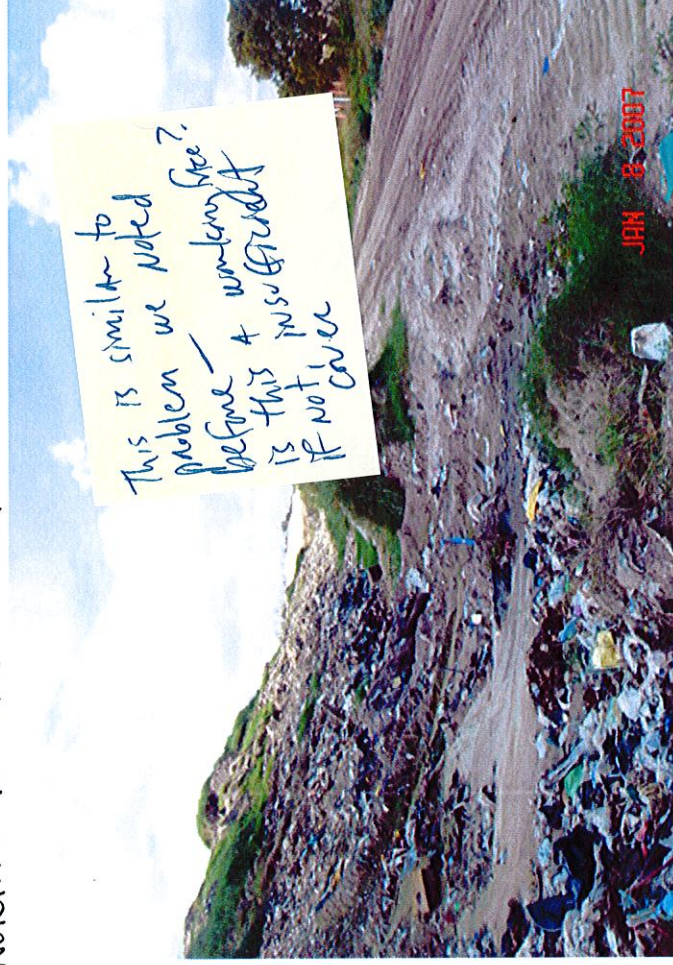 This is similar to
problem we noted
before —
is this a working face?
If not, insufficient
cover
JAN 8 2007